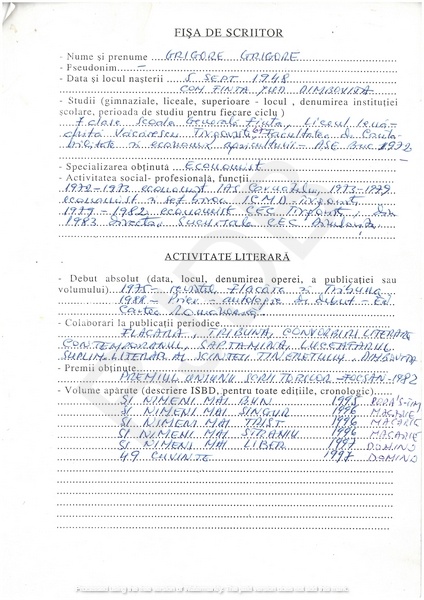 FIŞA DE SCRIITOR
- Nume şi prenume GRIGORE GRIGORE
- Pseudonim –
- Data şi locul naşterii 5 SEPT 1948
COM FINTA JUD DIMBOVITA
- Studii (gimnaziale, liceale, superioare - locul, denumirea instituţiei
şcolare, perioada de studii pentru fiecare ciclu)
7 clase Scoala Generala Finta, Liceul Ienă-
chită Văcărescu Tirgoviste Facultatea de Conta-
bilitate si economia agriculturii - ASE Buc 1972
- Specializarea obţinută Economist
- Activitatea social- profesională, funcţii
1972-1973 economist IAS 1973-1979
economist
1979-1982 economist CEC Tirgoviste, din
1983 director Sucursala CEC Dimbovita
ACTIVITATE LITERARĂ
- Debut absolut (data, locul, denumirea operei, a publicaţiei sau
volumului) 1975 - revistele Flacăra si Tribuna
1988 - Prier - antologie de debut - Ed
Cartea Românească
- Colaborari la publicaţii periodice
FLACARA, TRIBUNA, CONVORBIRI LITERARE
CONTEMPORANUL, SAPTAMINA, LUCEAFARUL
SUPLIM LITERAR AL SCINTEII TINERETULUI, AMBASADA
- Premii obţinute
PREMIUL UNIUNII SCRIITORILOR - FOCSANI - 1982
- Volume apărute (descriere ISBD, pentru toate ediţiile, cronologic)
SI NIMENI MAI BUN 1995
SI NIMENI MAI SINGUR 1996 MACARIE
SI NIMENI MAI TRIST 1996 MACARIE
SI NIMENI MAI STRANIU 1996 MACARIE
SI NIMENI MAI LIBER 1997 DOMINO
49 CUVINTE 1997 DOMINO